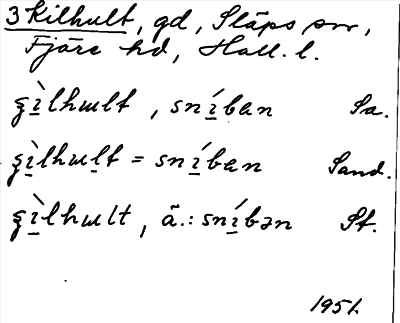 3 Kilhult, gd, Släps sn,
Fjäre hd, Hall. l.
ʒì̱lhɯlt, sní̱ban Sa.
ʒì̱lhɯlt = sní̱ban Sand.
ʒì̱lhɯlt, ä.: sní̱bən St.
1951.